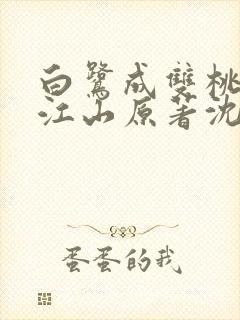 白鹭成雙桃
江山原著沈
蛋蛋的我